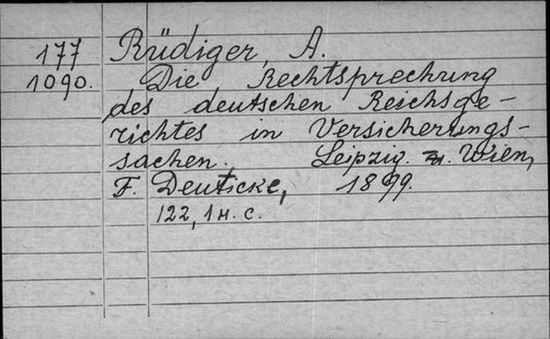 177 Rüdiger, A.
1090. Die Rechtsprechung
des deutschen Reichsge-
richtes in Versicherungs-
sachen. Leipzig. u. Wien,
F. Deuticke, 1899.
122, 1 н. с.